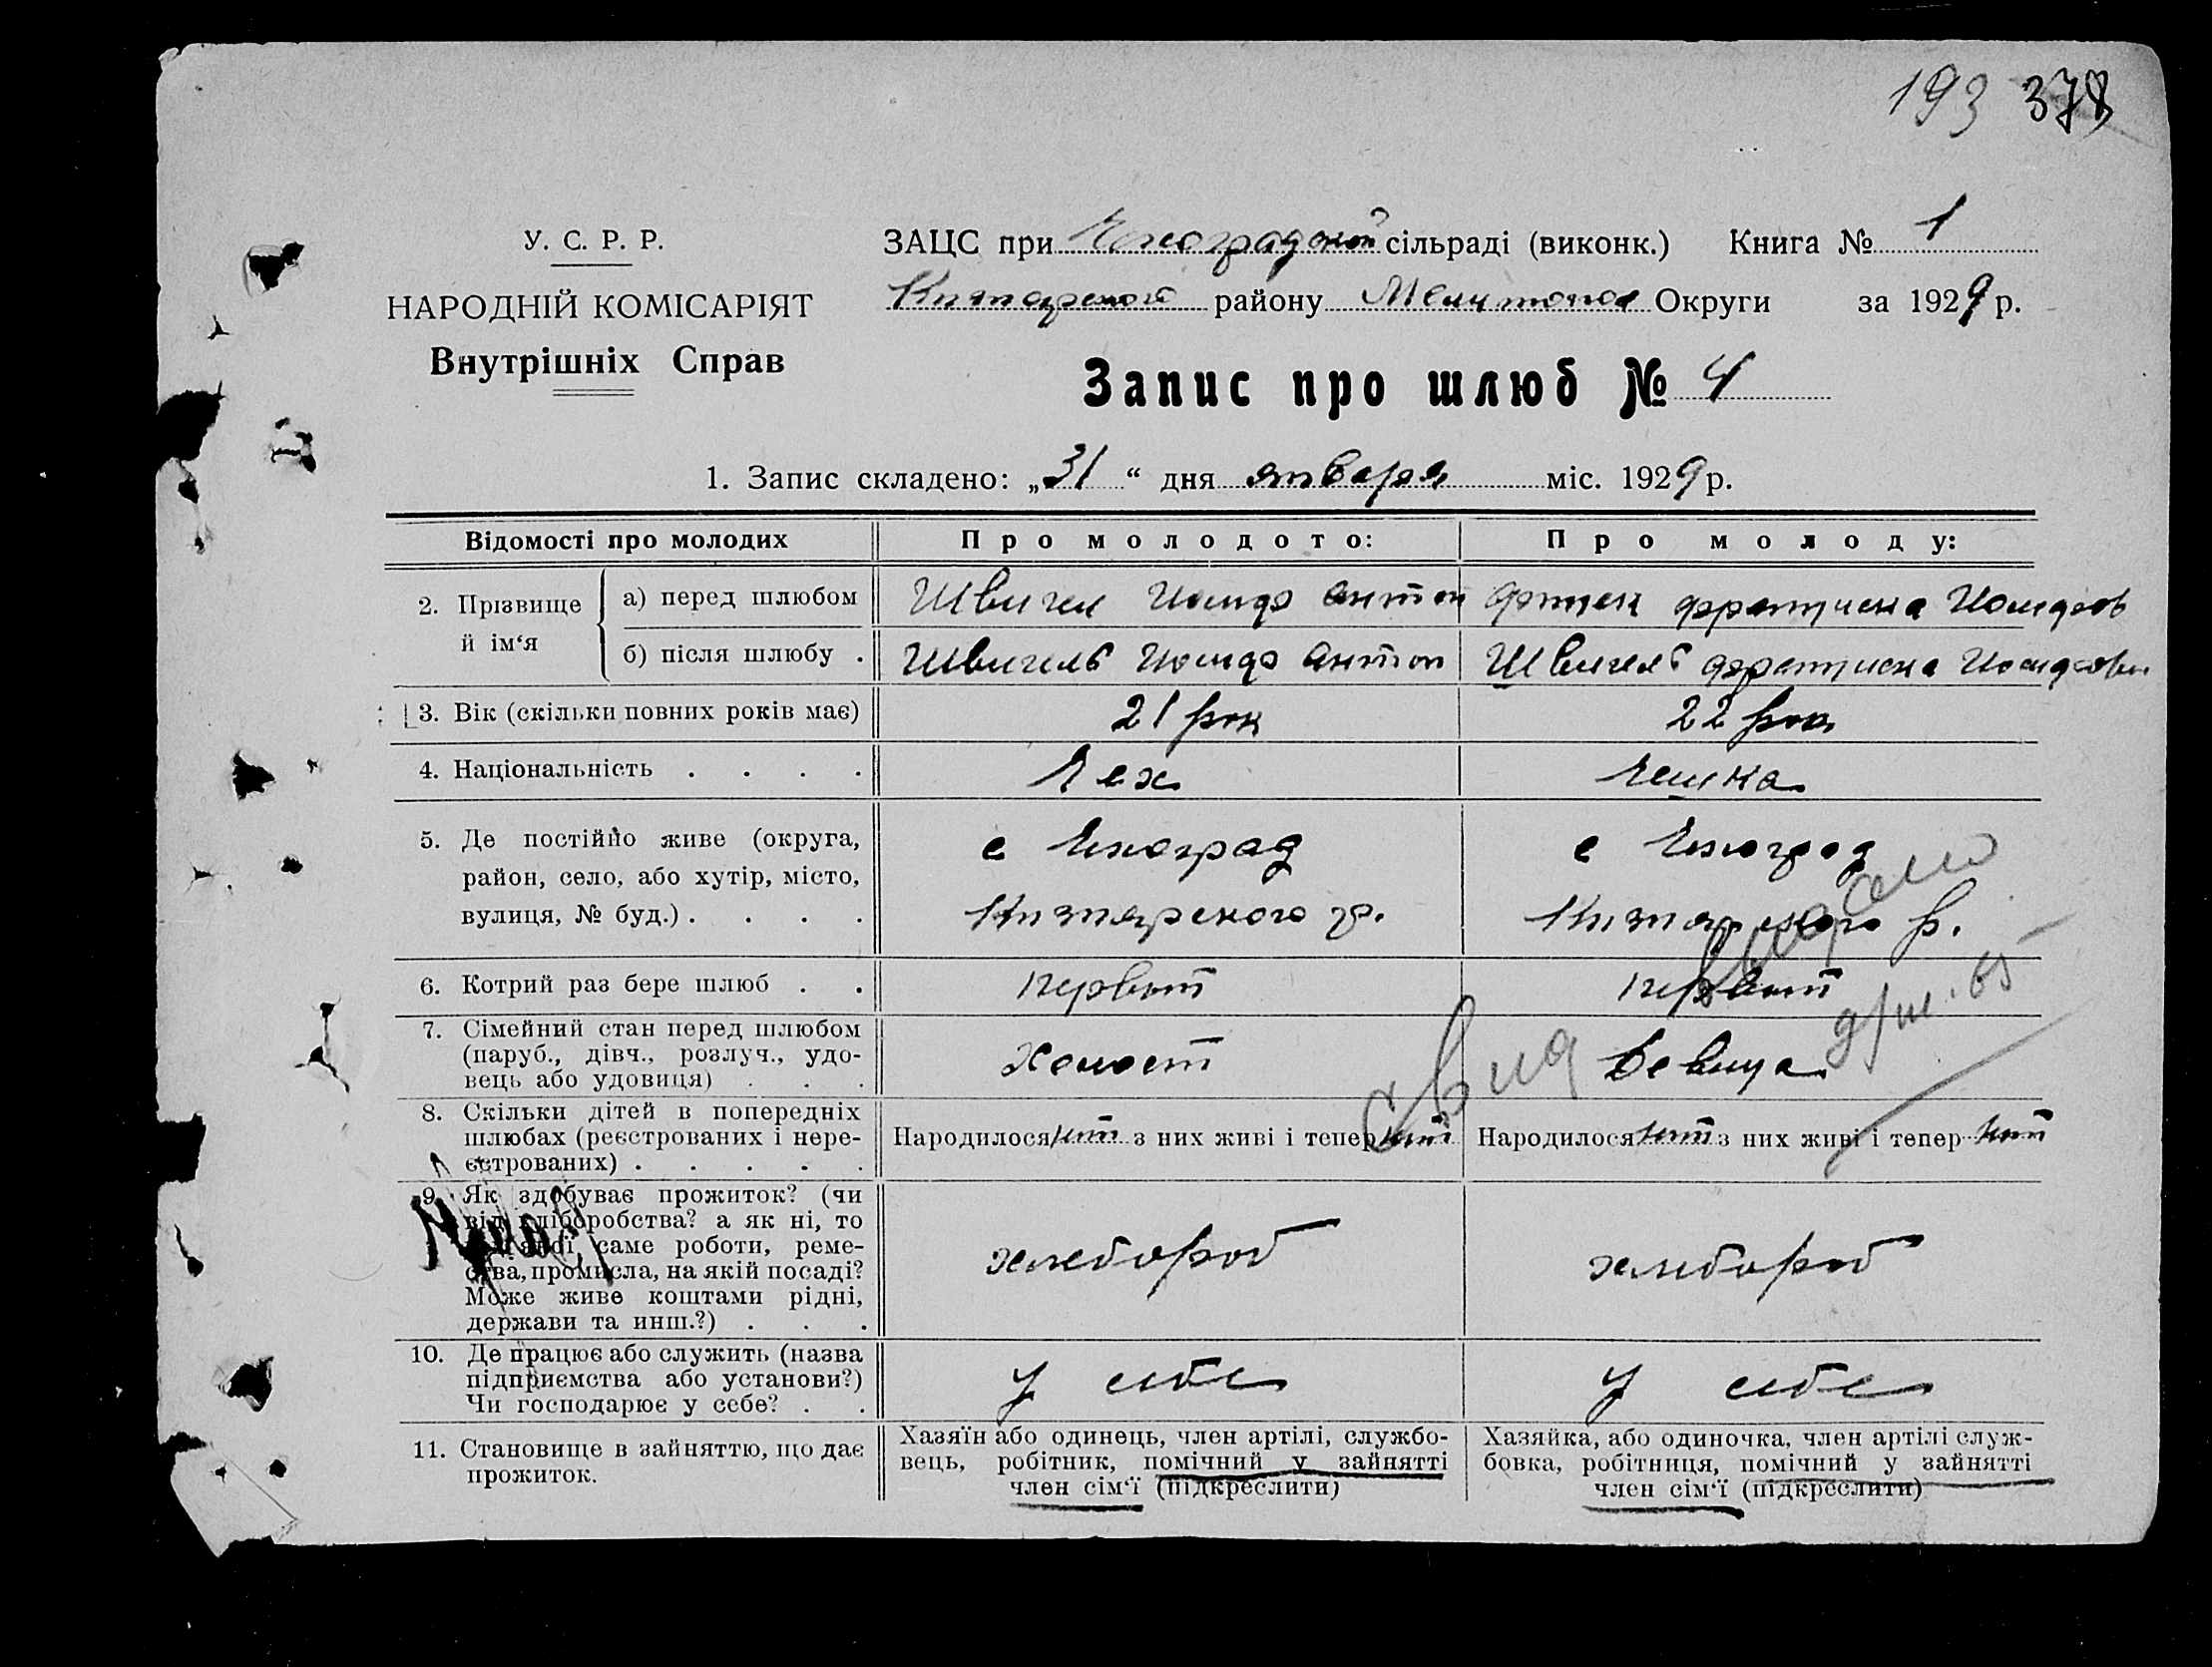 193 378
У. С. Р. Р.
НАРОДНІЙ КОМІСАРІЯТ
Внутрішніх Справ
ЗАЦС при Чехоградской сільраді (виконк.) Книга № 1
Кизиярского району Мелитопол Округи за 1929 р.
Запис про шлюб № 4
1. Запис складено: „31“ дня января міс. 1929 р.
Відомості про молодих Про молодого: Про молоду:
2. Прізвище й ім‘я
а) перед шлюбом Швигел Иосиф Антон Франтишка Иосифов
б) після шлюбу . Швигель Иосиф Антон Швигель Франтишка Иосифовн
3. Вік (скільки повних років має) 21 рок 22 рок
4. Національність . . . . Чех Чешка
5. Де постійно живе (округа,
район, село, або хутір, місто,
вулиця, № буд.) . . . .
с Чехоград
Кизиярского р.
с Чехоград
Кизиярского р.
6. Котрий раз бере шлюб . . первый первый
7. Сімейний стан перед шлюбом
(паруб., дівч., розлуч., удо-
вець або удовиця) . . .
Холост
Девица
8. Скільки дітей в попередніх
шлюбах (реєстрованих і нере-
єстрованих) . . . . .
Народилося нит з них живі і тепер нит
Народилося нит з них живі і тепер нит
Свид выдано
9. Як здобуває прожиток? (чи
від хліборобства? а як ні, то
саме роботи, реме-
ства, промисла, на якій посаді?
Може живе коштами рідні,
держави та инш.?) . . .
хлебороб
хлебороб
10. Де працює або служить (назва
підприємства або установи?)
Чи господарює у себе? . .
У себе
У себе
11. Становище в зайняттю, що дає
прожиток.
Хазяїн або одинець, член артілі, службо-
вець, робітник, помічний у зайнятті
член сім‘ї (підкреслити)
Хазяйка, або одиночка, член артілі служ-
бовка, робітниця, помічний у зайнятті
член сім‘ї (підкреслити)